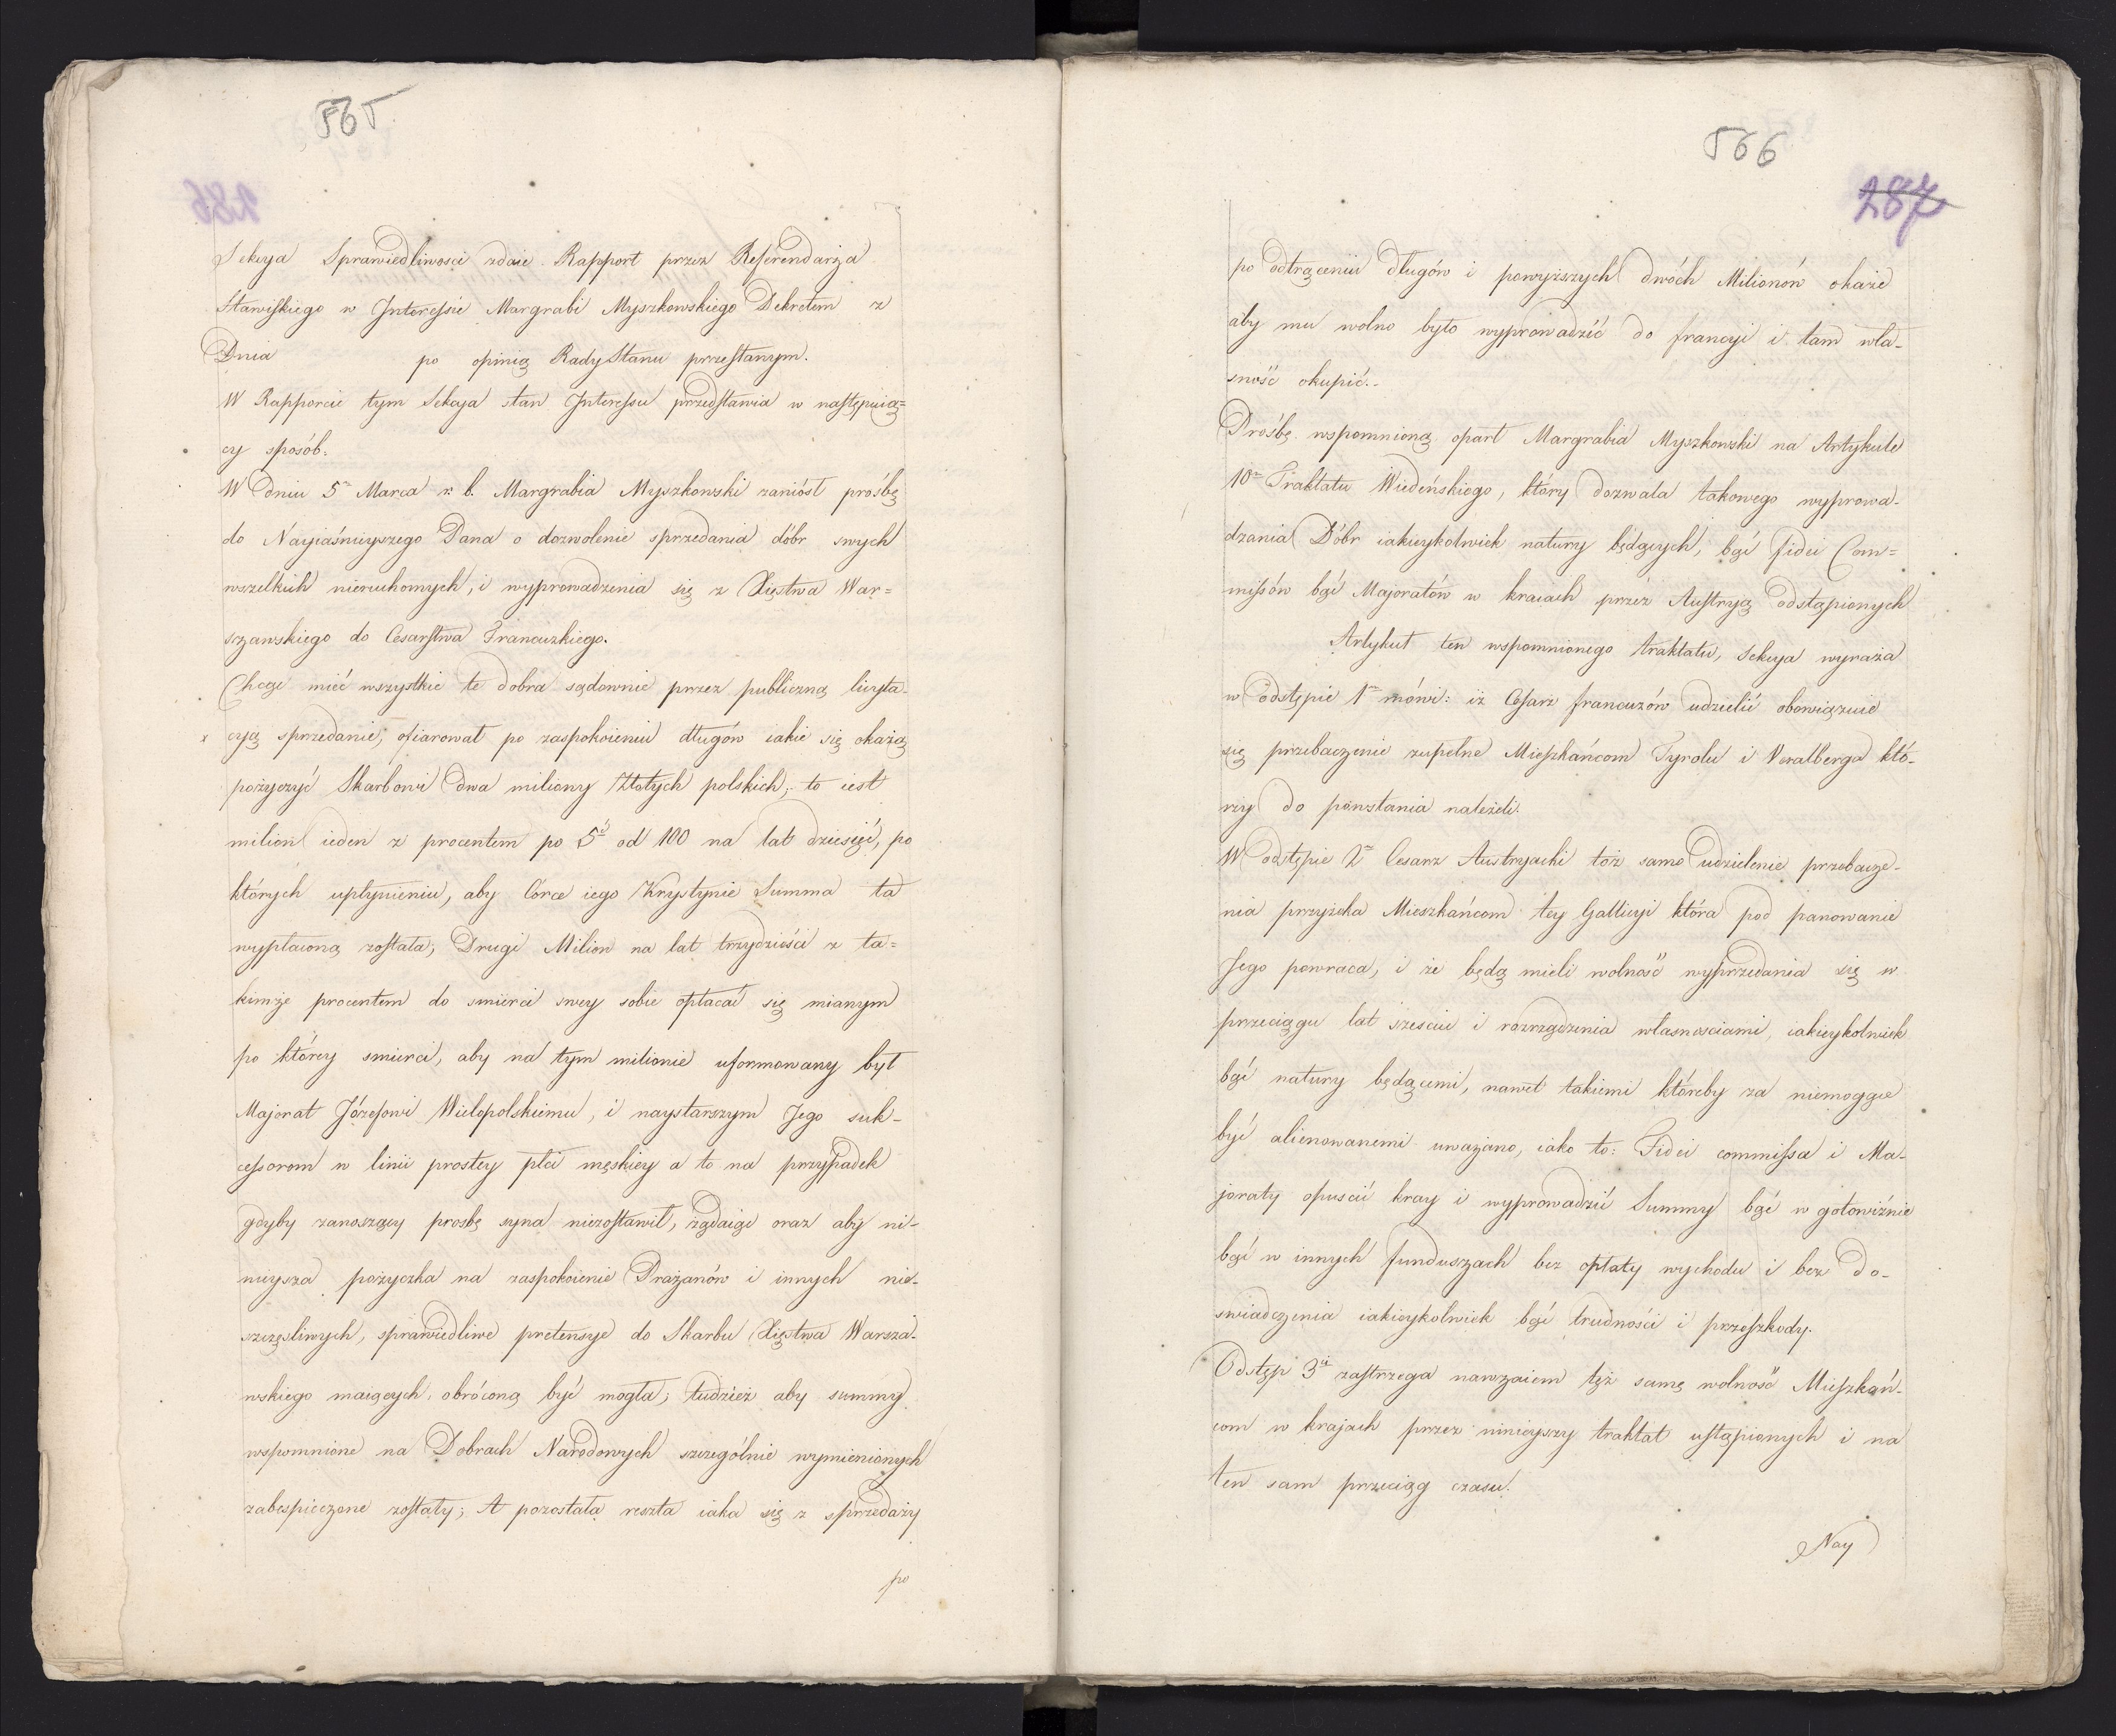 565
286
Sekcya Sprawiedliwosci zdaie Rapport przez Referendarza
Stawiskiego w Interessie Margrabi Myszkowskiego Dekretem z
Dnia po opinią Rady Stanu przesłanym.
W Rapporcie tym Sekcya stan Interessu przedstawia w następuią=
cy sposób:
W Dniu 5m Marca r. b. Margrabia Myszkowski zaniósł prośbę
do Nayiaśnieyszego Pana o dozwolenie sprzedania dóbr swych
wszelkich nieruchomych, i wyprowadzenia się z Xięstwa War=
szawskiego do Cesarstwa Francuzkiego.
Chcąc mieć wszystkie te dobra sądownie przez publiczną licyta-
cyą sprzedanie, ofiarował po zaspokoieniu długów iakie się okażą
pożyczyć Skarbowi dwa miliony Złotych polskich, to iest
milion ieden z procentem po 5ć od 100 na lat dziesięć, po
których upłynieniu, aby Córce iego Krystynie Summa ta
wypłaconą została; Drugi Milion na lat trzydzieści z ta=
kimże procentem do smierci swey sobie opłacać się mianym
po którey smierci, aby na tym milionie uformowany był
Majorat Józefowi Wielopolskiemu, i naystarszym Jego suk-
cessorom w linii prostey płci męskiey a to na przypadek
gdyby zanoszący prosbę syna niezostawił, żądaiąc oraz aby ni-
nieysza pożyczka na zaspokoienie Prażanów i innych nie-
szczęsliwych, sprawiedliwe pretensye do Skarbu Xięstwa Warsza-
wskiego maiących, obróconą być mogła; tudzież aby summy
wspomnione na Dobrach Narodowych szczególnie wymienionych
zabespieczone zostały; A pozostała reszta iaka się z sprzedaży
po
566
287
po odtrąceniu długów i powyższych dwóch Milionów okaże
aby mu wolno było wyprowadzić do francyi i tam wła-
sność okupić.
Prośbę wspomnioną oparł Margrabia Myszkowski na Artykule
10m Traktatu Wiedeńskiego, który dozwala takowego wyprowa-
dzania Dóbr iakieykolwiek natury będących, bąć fidei Com=
missów bąć Majoratów w kraiach przez Austryą odstąpionych
Artykuł ten wspomnionego traktatu, Sekcya wyraża
w odstępie 1m mówi: iż Cesarz francuzów udzielić obowięzuie
się przebaczenie zupełne Mieszkańcom Tyrolu i Voralberga któ-
rzy do powstania należeli.
W odstępie 2m Cesarz Austryacki toż samo udzielenie przebacze-
nia przyżeka Mieszkańcom tey Gallicyi która pod panowanie
Jego powraca, i że będą mieli wolność wyprzedania się w
przeciągu lat szesciu i rozrządzenia własnosciami, iakieykolwiek
bąć natury będącemi, nawet takiemi któreby za niemogące
być alienowanemi uważano, iako to: Fidei commissa i Ma-
joraty opuscić kray i wyprowadzić Summy bąć w gotowiznie
bąć w innych funduszach bez opłaty wychodu i bez do-
swiadczenia iakieykolwiek bąć trudności i przeszkody.
Odstęp 3ci zastrzega nawzaiem tęż samę wolność Mieszkań-
com w krajach przez ninieyszy traktat ustąpionych i na
ten sam przeciąg czasu.
Nay